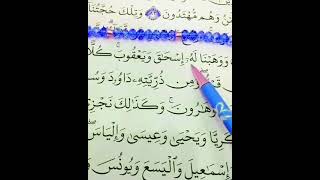 وَهُم مُّهْتَدُونَ ۝ وَتِلْكَ حُجَّتُنَا
وَوَهَبْنَا لَهُۥٓ إِسْحَٰقَ وَيَعْقُوبَ ۚ كُلًّا
مِن ذُرِّيَّتِهِۦ دَاوُۥدَ
وَهَٰرُونَ ۚ وَكَذَٰلِكَ نَجْزِي
وَيَحْيَىٰ وَعِيسَىٰ وَإِلْيَاسَ ۖ
إِسْمَٰعِيلَ وَالْيَسَعَ وَيُونُسَ